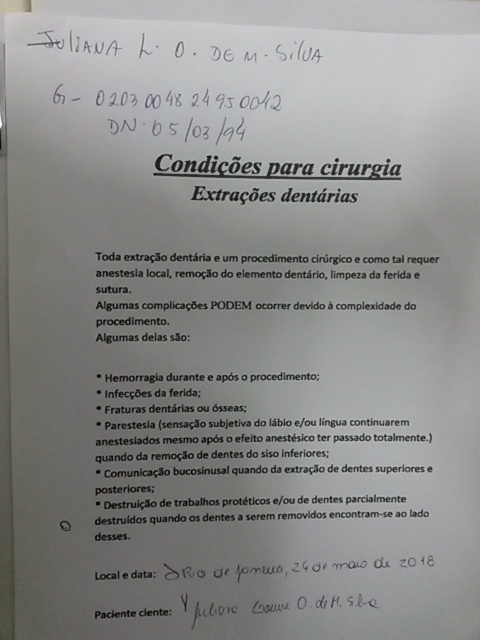 JULIANA L. O. DE M. SILVA
G- 0203 0048 2495 0042
DN. 05/03/94
Condições para cirurgia
Extrações dentárias
Toda extração dentária e um procedimento cirúrgico e como tal requer
anestesia local, remoção do elemento dentário, limpeza da ferida e
sutura.
Algumas complicações PODEM ocorrer devido à complexidade do
procedimento.
Algumas delas são:
* Hemorragia durante e após o procedimento;
* Infecções da ferida;
* Fraturas dentárias ou ósseas;
* Parestesia (sensação subjetiva do lábio e/ou língua continuarem
anestesiados mesmo após o efeito anestésico ter passado totalmente.)
quando da remoção de dentes do siso inferiores;
* Comunicação bucosinusal quando da extração de dentes superiores e
posteriores;
* Destruição de trabalhos protéticos e/ou de dentes parcialmente
destruídos quando os dentes a serem removidos encontram-se ao lado
desses.
Local e data: Rio de Janeiro, 24 de maio de 2018
Paciente ciente: Juliana O. de M. Silva